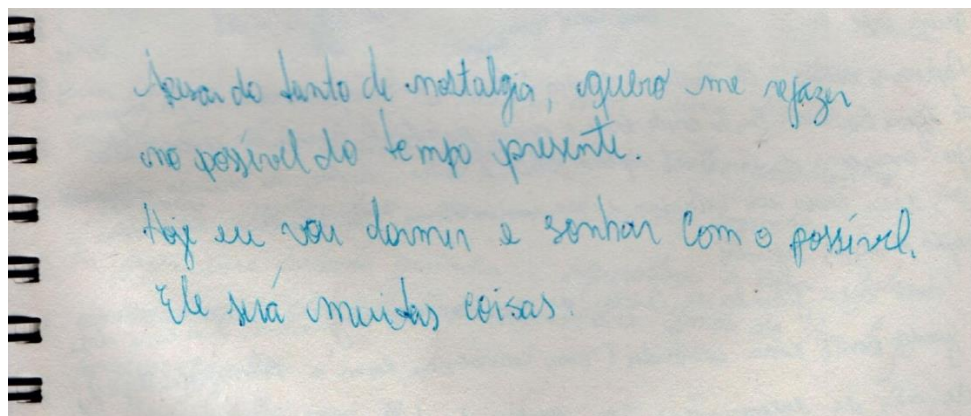 Apesar do tanto de nostalgia, quero me refazer
no possível do tempo presente.
Hoje eu vou dormir e sonhar com o possível.
Ele será muitas coisas.